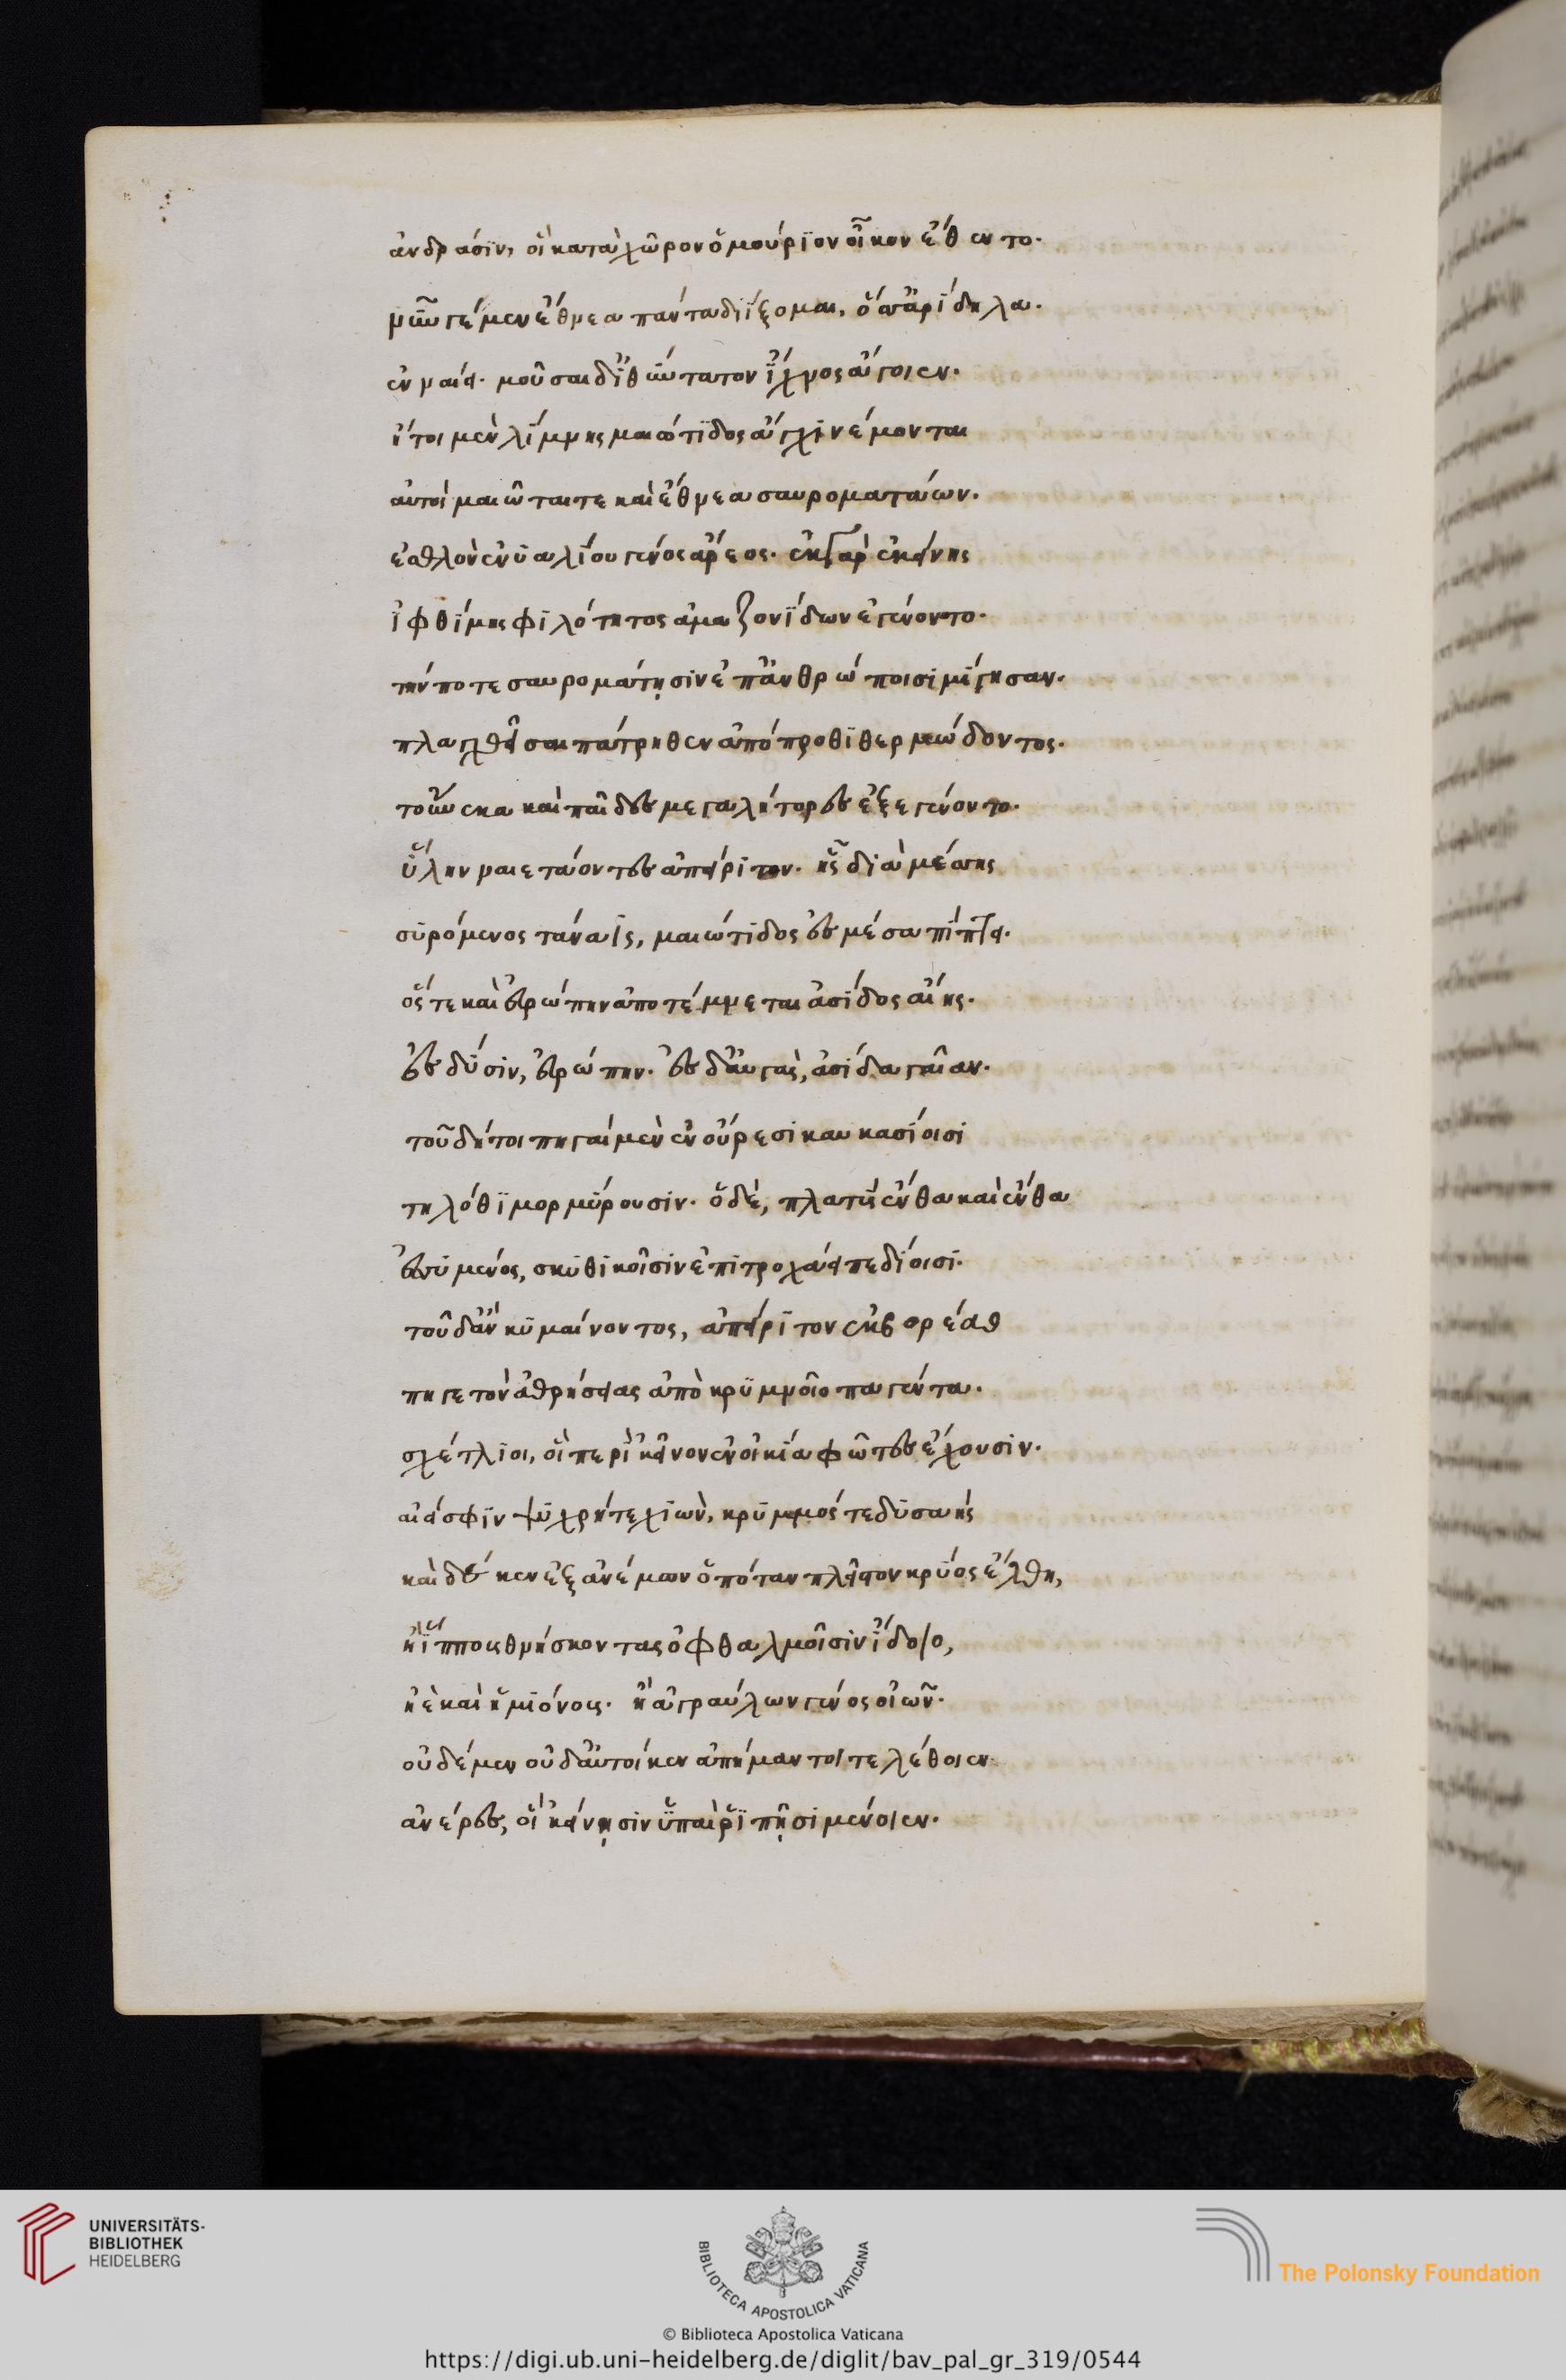 ἀνδράσιν, οἳ κατὰ χῶρον ὁμούριον οἶκον ἔθεντο.
νῦν γέ μεν ἔθνεα πάντα διΐξομαι, ὅσ' ἀρίδηλα.
ἐνναίει. μοῦσαι δ' ἰθύντατον ἴχνος ἄγοιεν.
ἤτοι μὲν λίμνης μαιώτιδος ἄγχι νέμονται
αὐτοὶ μαιῶταί τε καὶ ἔθνεα σαυροματάων.
ἐσθλὸν ἐνυαλίου γένος ἄρεος. ἐκ γὰρ ἐκείνης
ἰφθίμης φιλότητος ἀμαζονίδων ἐγένοντο.
τήν ποτε σαυρομάτῃσιν ἐπ' ἀνθρώποισι μίγησαν.
πλαγχθεῖσαι πάτρηθεν ἀπόπροθι θερμώδοντος.
τοὔνεκα καὶ παῖδες μεγαλήτορες ἐξεγένοντο.
ὕλην ναιετάοντες ἀπείριτον. ἧς διὰ μέσσης
συρόμενος τάναϊς, μαιώτιδος ἐς μέσα πίπτει.
ὅς τε καὶ εὐρώπην ἀποτέμνεται ἀσίδος αἴης.
ἐς δύσιν, εὐρώπην. ἐς δ' αὐγὰς, ἀσίδα γαῖαν.
τοῦ δήτοι πηγαὶ μὲν ἐν οὔρεσι καυκασίοισι
τηλόθι μορμύρουσιν. ὁ δὲ, πλατὺς ἔνθα καὶ ἔνθα
ἐσσύμενος, σκυθικοῖσιν ἐπιτροχάει πεδίοισι.
τοῦ δ' ἂν κυμαίνοντος, ἀπείριτον ἐκ βορέαο
πηγετὸν ἀθρήσειας ἀπὸ κρυμνοῖο παγέντα.
σχέτλιοι, οἳ περὶ κεῖνον ἐνοικία φῶτες ἔχουσιν.
αἰεί σφιν ψυχρή τε χιὼν, κρυμμός τε δυσαής
καὶ δέ κεν ἐξ ἀνέμων ὁπόταν πλεῖστον κρύος ἔλθη,
ἢ ἵππους θνήσκοντας ὀφθαλμοῖσιν ἴδοιο,
ἠὲ καὶ ἡμιόνους. ἢ ἀγραύλων γένος οἰῶν.
οὐδέ μεν οὐδ' αὐτοί κεν ἀπήμαντοι τελέθοιεν
ἀνέρες, οἳ κείνῃσιν ὑπαὶ ῥιπῇσι μένοιεν.
UNIVERSITÄTS-
BIBLIOTHEK
HEIDELBERG
BIBLIOTECA APOSTOLICA VATICANA
The Polonsky Foundation
© Biblioteca Apostolica Vaticana
https://digi.ub.uni-heidelberg.de/diglit/bav_pal_gr_319/0544